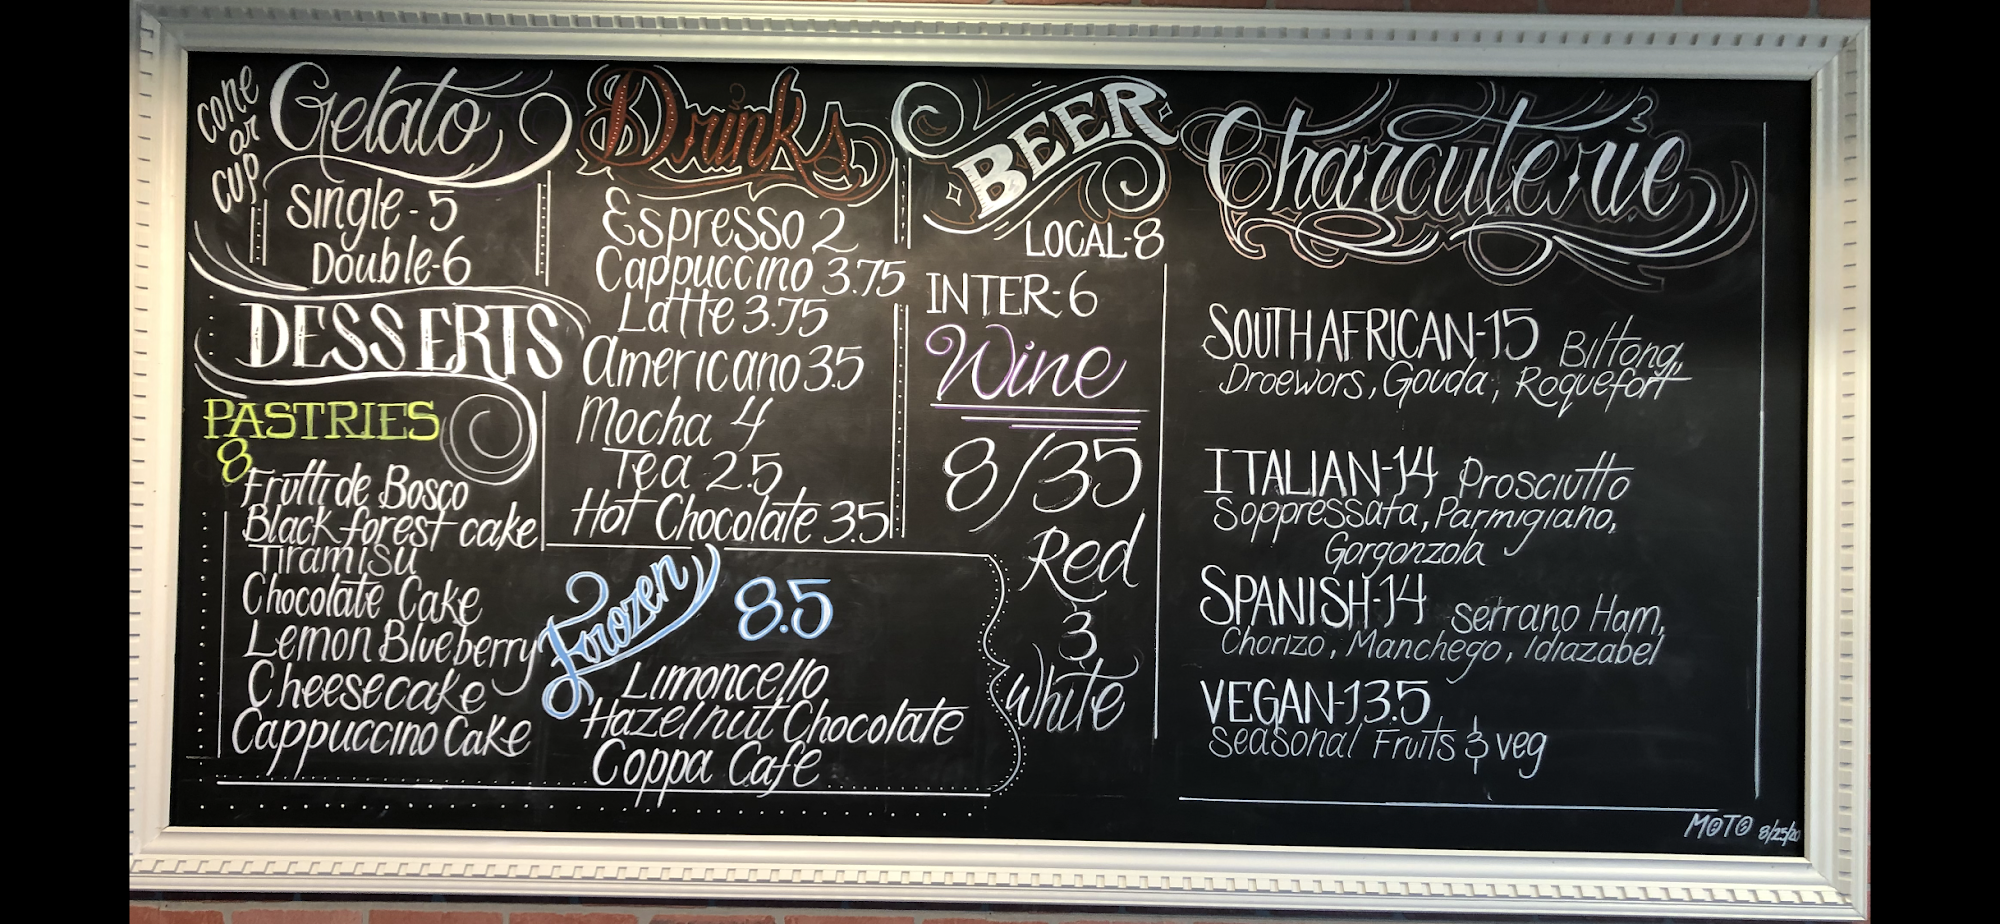 cone
or
cup
Gelato
Single-5
Double-6
DESSERTS
PASTRIES
8
Frutti de Bosco
Black forest cake
Tiramisu
Chocolate Cake
Lemon Blueberry
Cheesecake
Cappuccino Cake
Drinks
Espresso 2
Cappuccino 3.75
Latte 3.75
Americano 3.5
Mocha 4
Tea 2.5
Hot Chocolate 3.5
Frozen 8.5
Limoncello
Hazelnut Chocolate
Coppa Cafe
BEER
LOCAL-8
INTER-6
Wine
8/35
Red
&
White
Charcuterie
SOUTH AFRICAN-15 Biltong,
Droewors, Gouda, Roquefort
ITALIAN-14 Prosciutto
Soppressata, Parmigiano,
Gorgonzola
SPANISH-14 Serrano Ham,
Chorizo, Manchego, Idiazabel
VEGAN-13.5
Seasonal Fruits & veg
MOTO 8/25/20